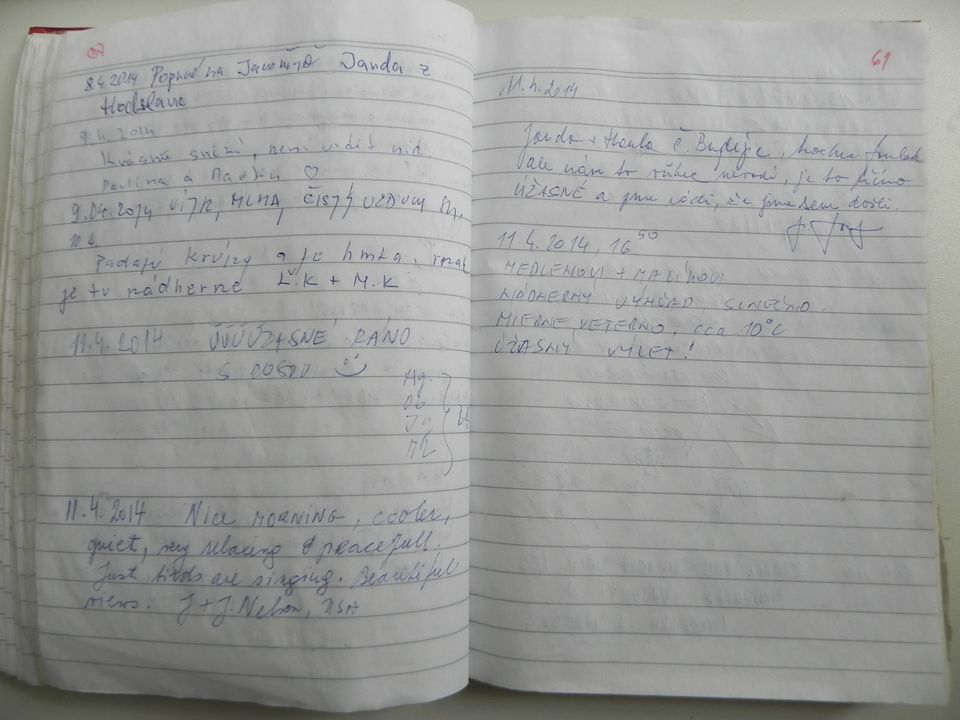 8.4.2014 Poprvé na Javorníě Janda z
Hodslavic
9.4.2014
Krásně sněží, není vidět nic.
Pavlína a Martin ♡
9.04.2014 VÍTR, MLHA, ČISTÝ VZDUCH
10.4.
Padajú krúpy a je hmla,
je tu nádherne Ľ.K + M.K
11.4.2014 ÚÚÚŽASNÉ RÁNO
S
11.4.2014 Nice MORNING, COOLER,
quiet, very relaxing & peacefull.
Just birds are singing. Beautiful
views. J + J. Nelson, USA
61
11.4.2014
Jarda + Hanka Č. Buděje,
ale nám to vůbec nevadí, je to přímo
ÚŽASNÉ a jsme rádi, že jsme sem došli.
11.4.2014, 16⁵⁰
MEDLENOVI + MALÍKOVI
NÁDHERNÝ VÝHĽAD SLNEČNO,
MIERNE VETERNO, cca 10°C
ÚŽASNÝ VÝLET!